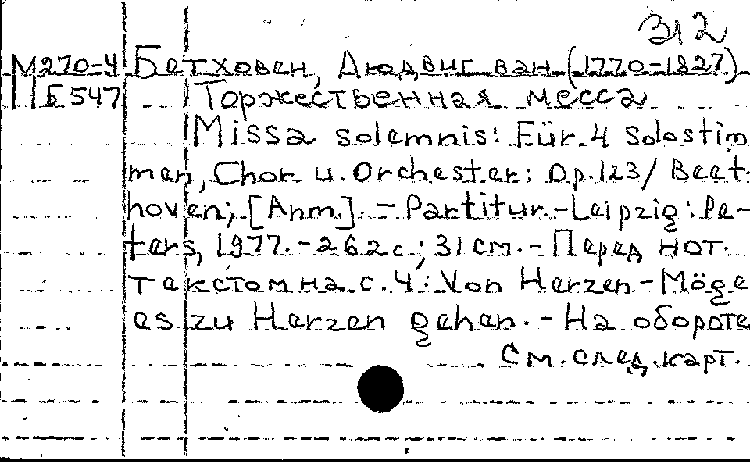 312
М270-4 Бетховен, Людвиг ван (1770-1827)
Б547 Торжественная месса
Missa solemnis: Für 4 Solostim
men, Chor u. Orchester: Op.123/ Beet-
hoven; [Anm.]. - Partitur.-Leipzig: Pe-
ters, 1977.-262с.; 31см.-Перед нот.
текстом на с.4: Von Herzen-Möge
es zu Herzen gehen.-На обороте
См. след. карт.